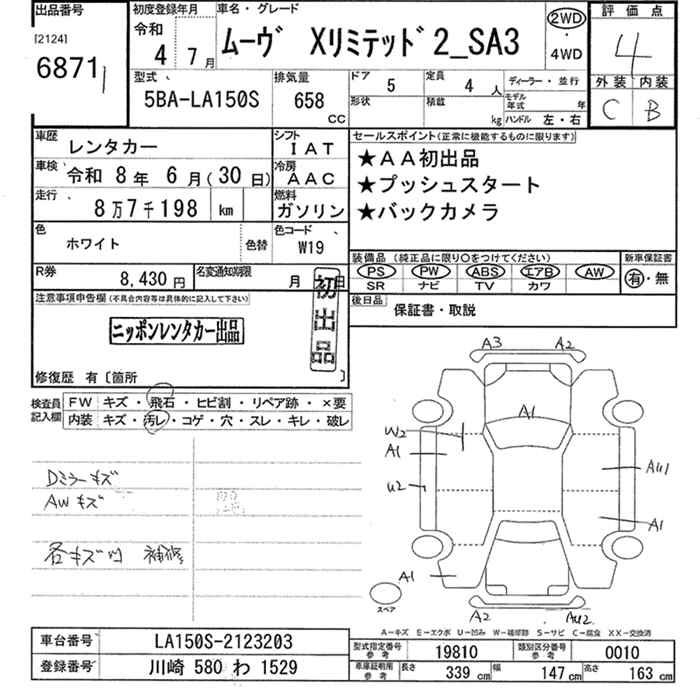 出品番号
[2124]
6871
初度登録年月
令和
4年 7月
車名・グレード
ムーヴ Xリミテッド2_SA3
2WD
・
4WD
評価点
4
外装 内装
C B
型式
5BA-LA150S
排気量
658 CC
ドア 5
定員 4 人
ディーラー・並行
形状
積載 kg
モデル年式 年
ハンドル 左・右
車歴 レンタカー
シフト IAT
車検 令和 8年 6月(30日)
冷房 AAC
走行 8万7千198 km
燃料 ガソリン
色 ホワイト 色替
色コード W19
R券 8,430円
名変通知期限 月 日
初出品
セールスポイント(正常に機能するものに限ります)
★AA初出品
★プッシュスタート
★バックカメラ
装備品(純正品に限り○をつけてください)
PS PW ABS エアB AW
SR ナビ TV カワ
新車保証書
有・無
後日品 保証書・取説
注意事項申告欄(不具合内容等は具体的に記入して下さい)
ニッポンレンタカー出品
修復歴 有〔箇所 〕
検査員記入欄
FW キズ・飛石・ヒビ割・リペア跡・×要
内装 キズ・汚レ・コゲ・穴・スレ・キレ・破レ
Dミラーキズ
AWキズ
各キズ凹 補修
A3 A2
A1
W2
A1
U2
AU1
A1
A1
スペア
A2 AU2
A−キズ E−エクボ U−凹み W−補修跡 S−サビ C−腐食 XX−交換済
車台番号 LA150S-2123203
登録番号 川崎 580 わ 1529
型式指定番号 参考 19810
類別区分番号 参考 0010
車庫証明用 参考 長さ 339 cm 幅 147 cm 高さ 163 cm